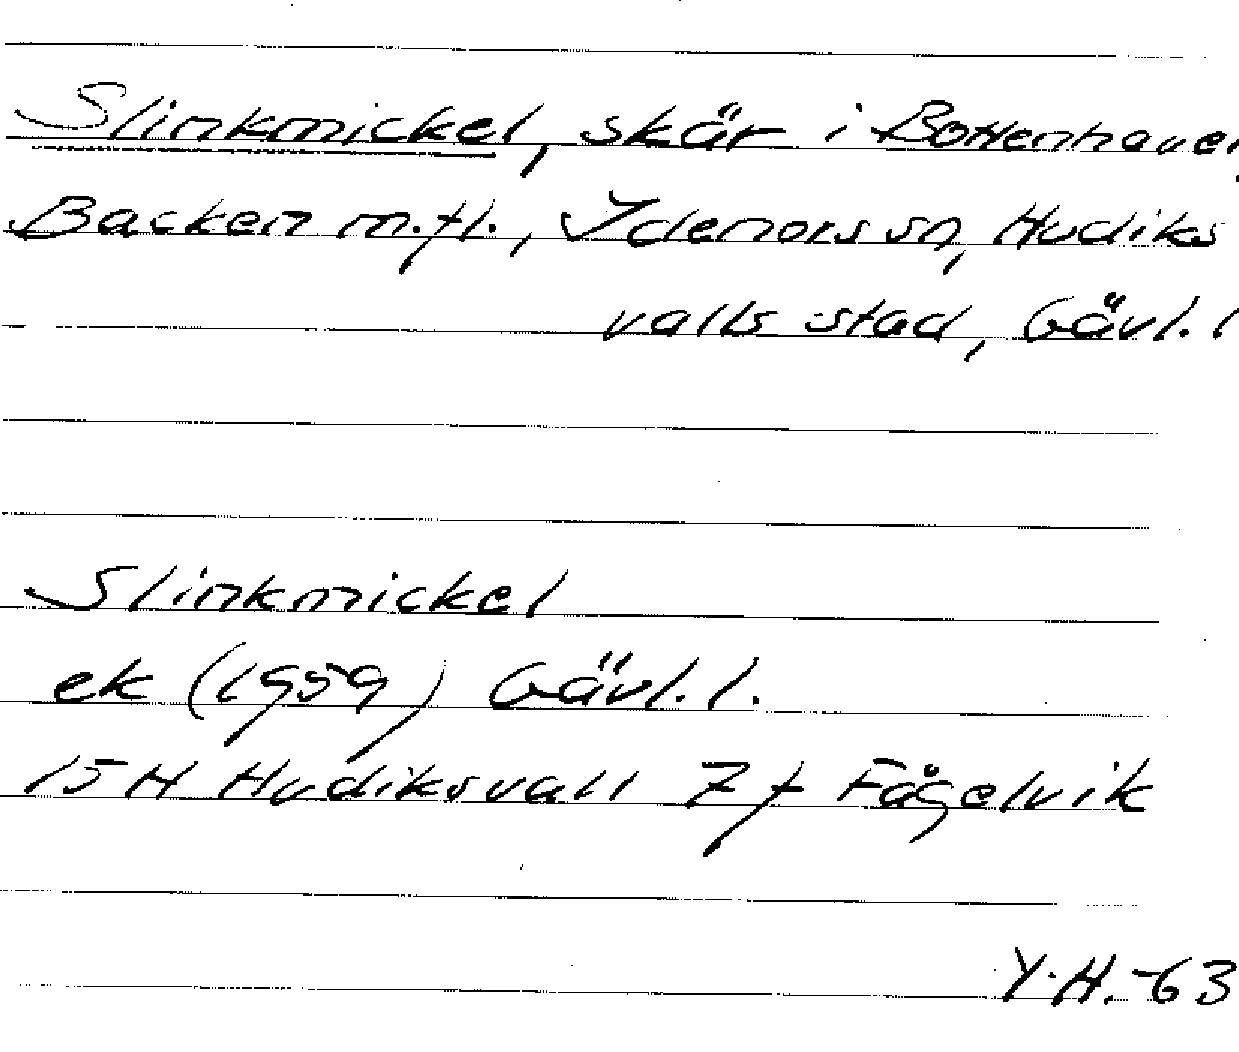 Slinkmickel, skär i Bottenhavet,
Backen m.fl., Idenors sn, Hudiks
valls stad, Gävl. l
Slinkmickel
ek (1959) Gävl. l.
15H Hudiksvall 7f Fågelvik
Y.H. -63